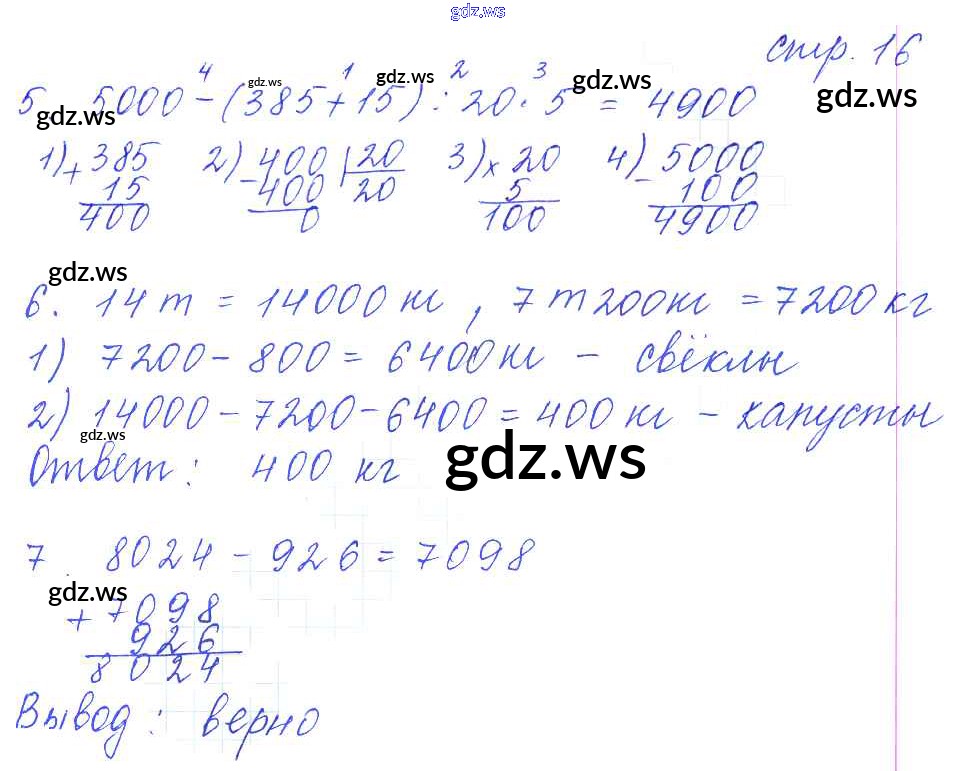 gdz.ws
стр. 16
gdz.ws
4 1 2 3
5. 5000 - (385 + 15) : 20 · 5 = 4900
gdz.ws gdz.ws gdz.ws gdz.ws
1) + 385 2) - 400 | 20 3) × 20 4) - 5000
15 400 20 5 100
400 0 100 4900
gdz.ws
6. 14 т = 14000 кг, 7 т 200 кг = 7200 кг
1) 7200 - 800 = 6400 кг - свёклы
2) 14000 - 7200 - 6400 = 400 кг - капусты
gdz.ws
Ответ: 400 кг
gdz.ws
7. 8024 - 926 = 7098
gdz.ws
+ 7098
926
8024
Вывод: верно